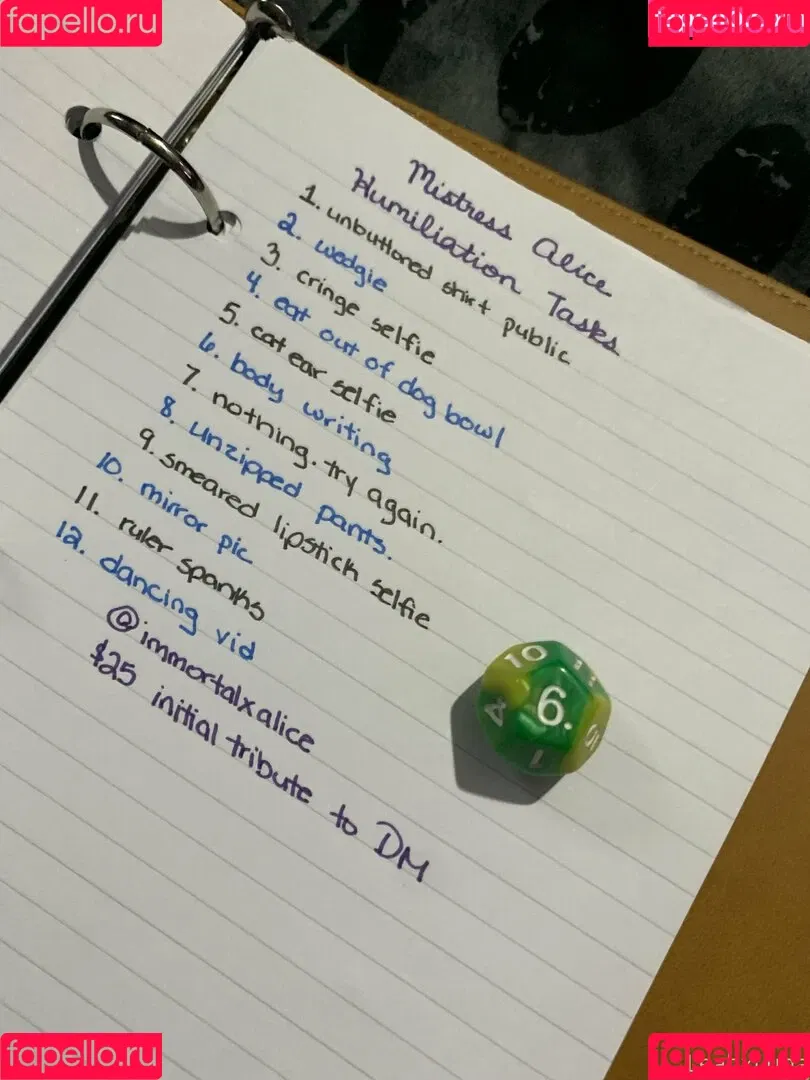 fapello.ru
fapello.ru
Mistress Alice
Humiliation Tasks
1. unbuttoned shirt public
2. wedgie
3. cringe selfie
4. eat out of dog bowl
5. cat ear selfie
6. body writing
7. nothing. try again.
8. unzipped pants.
9. smeared lipstick selfie
10. mirror pic
11. ruler spanks
12. dancing vid
@immortalxalice
$25 initial tribute to DM
10
11
6.
4
5
1
fapello.ru
fapello.ru